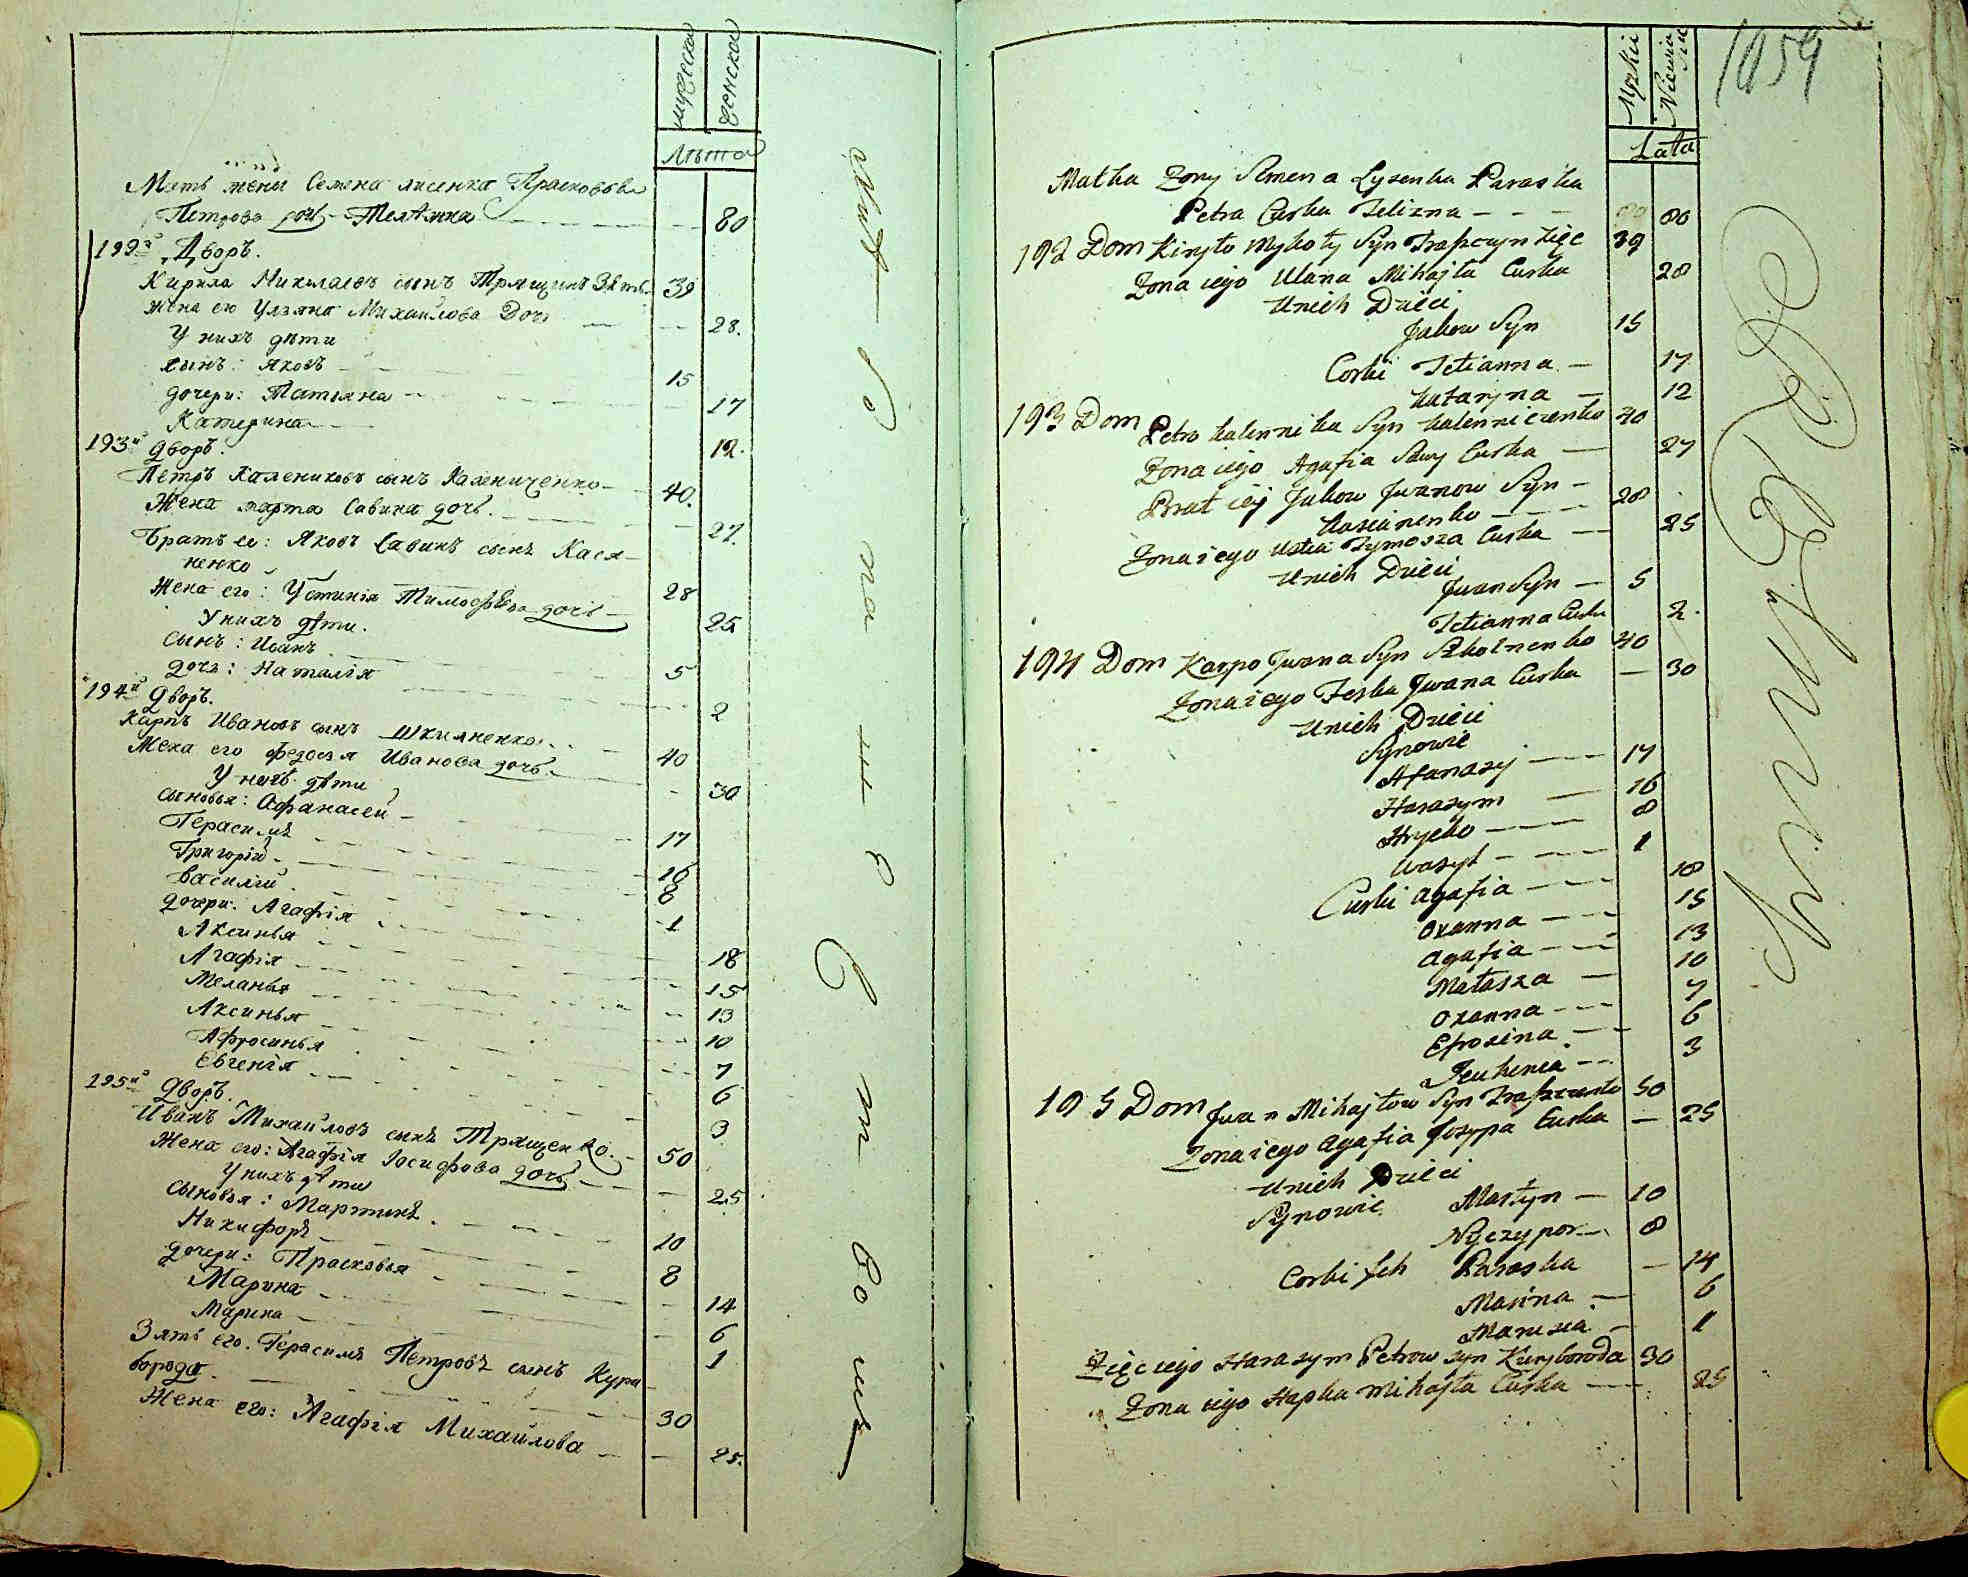 мужеска
женска
Лѣта
Мать жены Семена лисенка Прасковья
Петрова дочь Телѣжна 80
192й Дворъ.
Кирила Николаевъ сынъ Трящинъ Зять 39
Жена его Уляна Михайлова Дочь 28.
У нихъ дѣти
сынъ: Яковъ 15
дочери: Татіяна 17
Катерина 12.
193й дворъ.
Петръ Калениковъ сынъ Калениченко 40.
Жена марта Савина дочь. 27.
Братъ ее: Яковъ Савинъ сынъ Кася-
ненко 28
Жена его: Устинія Тимофѣева дочь 25
У нихъ дѣти.
Сынъ: Иванъ 5
дочь: Наталія 2
194й дворъ.
Карпъ Ивановъ сынъ Шкилненко 40
Жена его Федосія Иванова дочь. 30
У нихъ дѣти
сыновья: Афанасей 17
Герасимъ 16
Григорій 8
Василій 1
дочери: Агафія 18
Аксинья 15
Агафія 13
Меланья 10
Аксинья 7
Афросинья 6
Евгенія 3
195й Дворъ.
Иванъ Михайловъ сынъ Трященко. 50
Жена его: Агафія Іосифова дочь 25
У нихъ дѣти
сыновья: Мартинъ 10
Никифоръ 8
дочери: Прасковья 14
Марина 6
Марина 1
Зять его. Герасимъ Петровъ сынъ Кури-
борода. 30
Жена его: Агафія Михайлова 25.
1059
Męzkii
Niewia
Lata
Matka Zony Semena Lysenka Paraska
Petra Curka Telizna 80
192 Dom Kiryło Mykoły Syn Traszczyn Zięc 39
Zona iego Ulana Mihajła Curka 28
Unich Dzieci
Jakow Syn 15
Corki Tetianna 17
Kataryna 12
193 Dom Petro Kalennika Syn Kalenniczenko 40
Zona iego Agafia Sawy Curka 27
Brat iej Jakow Jwanow Syn 28
Kasianenko
Zona iego Ustia Tymosza Curka 25
Unich Dzieci
Jwan Syn 5
Tetianna Curka 2.
194 Dom Karpo Jwana Syn Szkolnenko 40
Zona iego Feska Jwana Curka 30
Unich Dzieci
Synowie
Afanasy 17
Harasym 16
Hryćko 8
Wasyl 1
Curki Agafia 18
Oxanna 15
Agafia 13
Małasza 10
Oxanna 7
Efrosina 6
Jeuhenia 3
195 Dom Jwan Mihajłow Syn Traszczenko 50
Zona iego Agafia Josypa Curka 25
Unich Dzieci
Synowie Martyn 10
Nyczypor 8
Corki Jch Paraska 14
Marina 6
Marusia 1
Zięc iego Harasym Petrow syn Kuryboroda 30
Zona iego Hapka Mihajła Curka 25